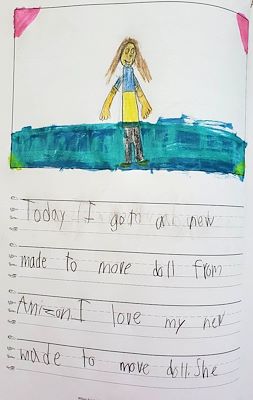 Today I goto a new
made to move doll from
Amizon. I love my new
made to move doll. She